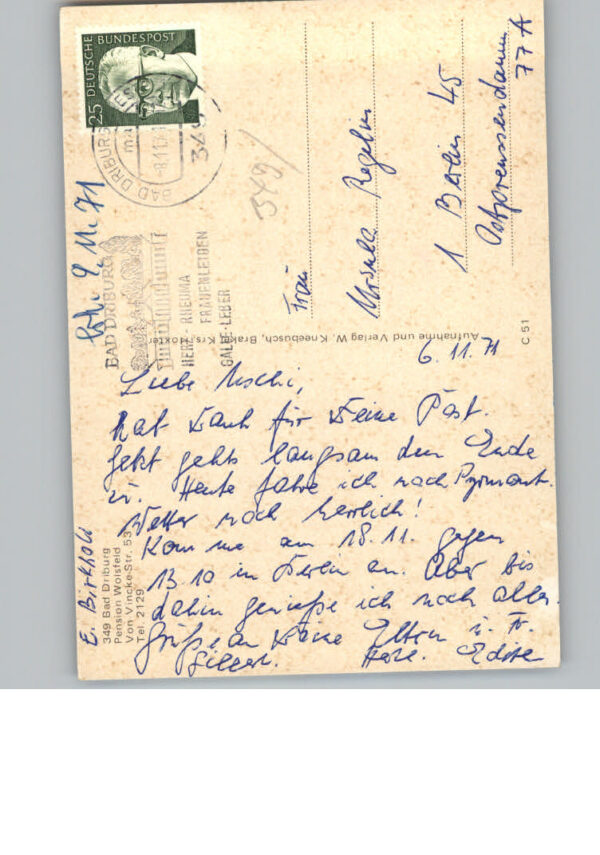 DEUTSCHE BUNDESPOST
25
BAD DRIBURG
349
BAD DRIBURG
HERZ - RHEUMA
FRAUENLEIDEN
GALLE-LEBER
349/
9. 11. 71
Frau
Ursula Regelin
1 Berlin 45
Ostpreussendamm
77 A
Aufnahme und Verlag W. Kneebusch, Brakel, Krs. Höxter
C 51
6. 11. 71
Liebe Uschi,
hab Dank für Deine Post.
Jetzt gehts langsam dem Ende
zu. Heute fahre ich nach Pyrmont.
Wetter noch herrlich!
Komme am 18. 11. gegen
13.10 in Berlin an. Aber bis
dahin genieße ich noch alles.
Grüße an Deine Eltern u. Fr.
Herzl. Edith
E. Birkholz
349 Bad Driburg
Pension Wolsfeld
Von Vincke-Str. 53
Tel. 2129